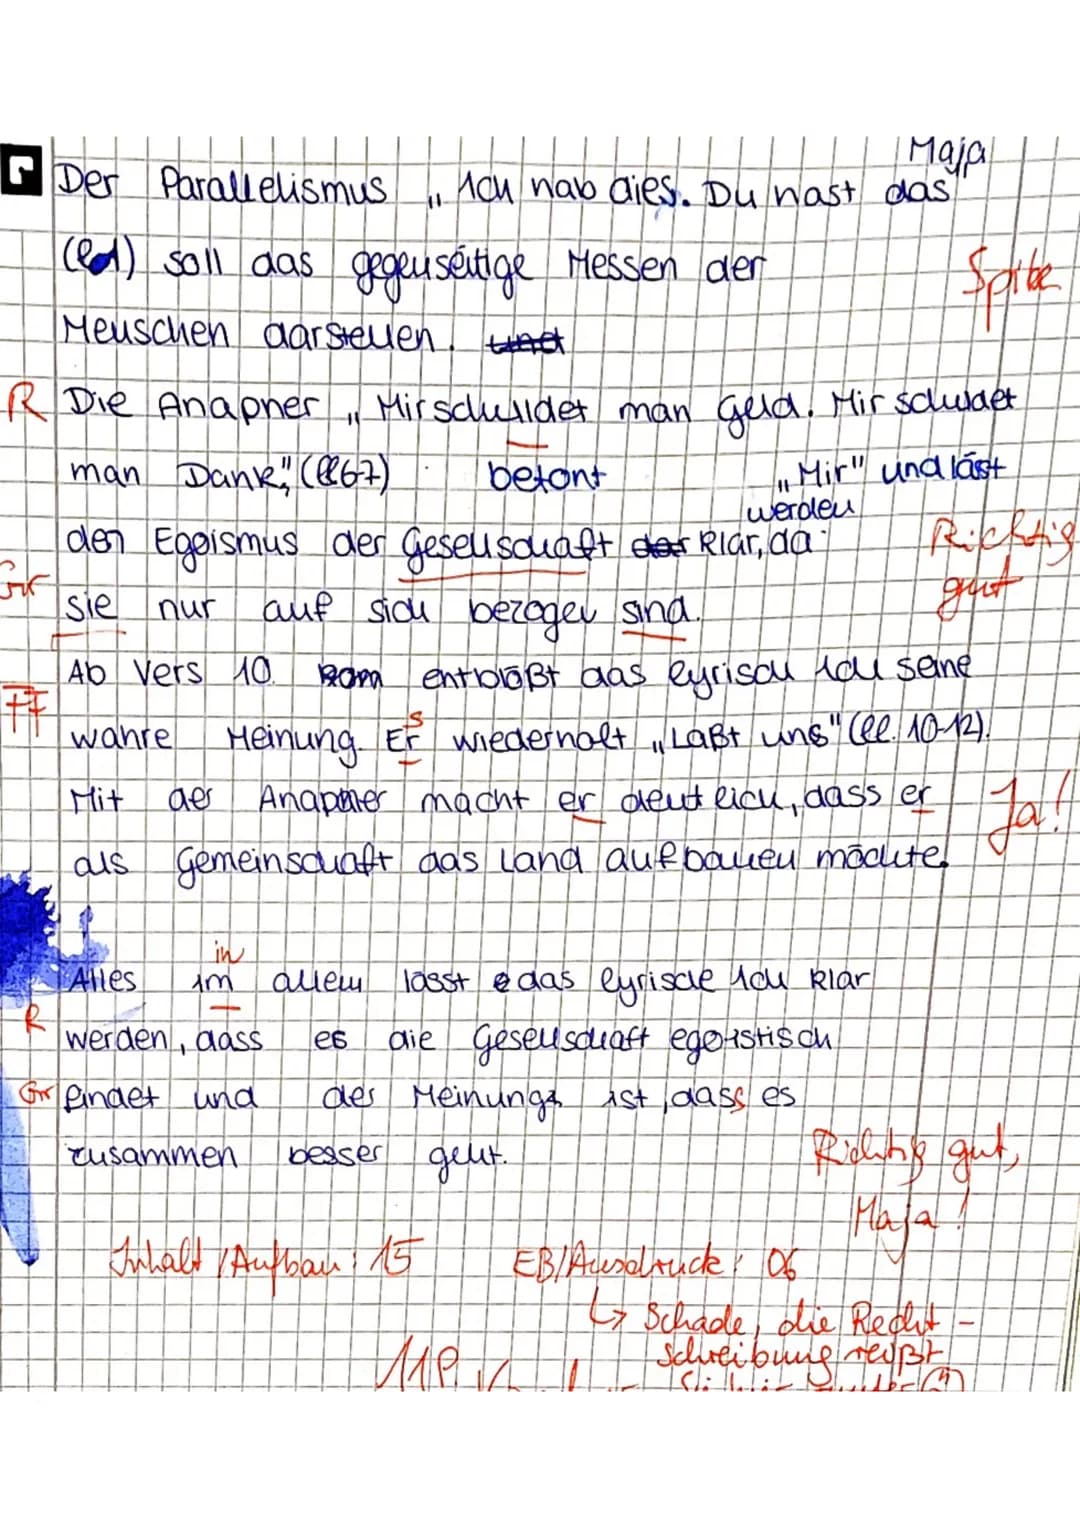 Maja
Der Parallelismus „Ich hab dies. Du hast das"
soll das gegenseitige Messen der
Spitze
Menschen darstellen.
R Die Anapher „Mir schuldet man Geld. Mir schuldet
man Dank" (ll 6-7) betont „Mir" und läst
werden
den Egoismus der Gesellschaft klar, da
Richtig
gut
Gr
sie nur auf sich bezogen sind.
Ab Vers 10 entblößt das lyrisch Ich seine
s
wahre Meinung. Er wiederholt „Laßt uns" (ll. 10-12).
Mit der Anapher macht er deutlich, dass er
Ja!
als Gemeinschaft das Land aufbauen möchte.
in
Alles im allem lässt das lyrische Ich klar
R
werden, dass es die Gesellschaft egoistisch
Gr findet und der Meinung ist, dass es
zusammen besser geht.
Richtig gut,
Maja!
Inhalt / Aufbau: 15 EB/Ausdruck: 06
↳ Schade, die Recht-
schreibung reißt
11P.